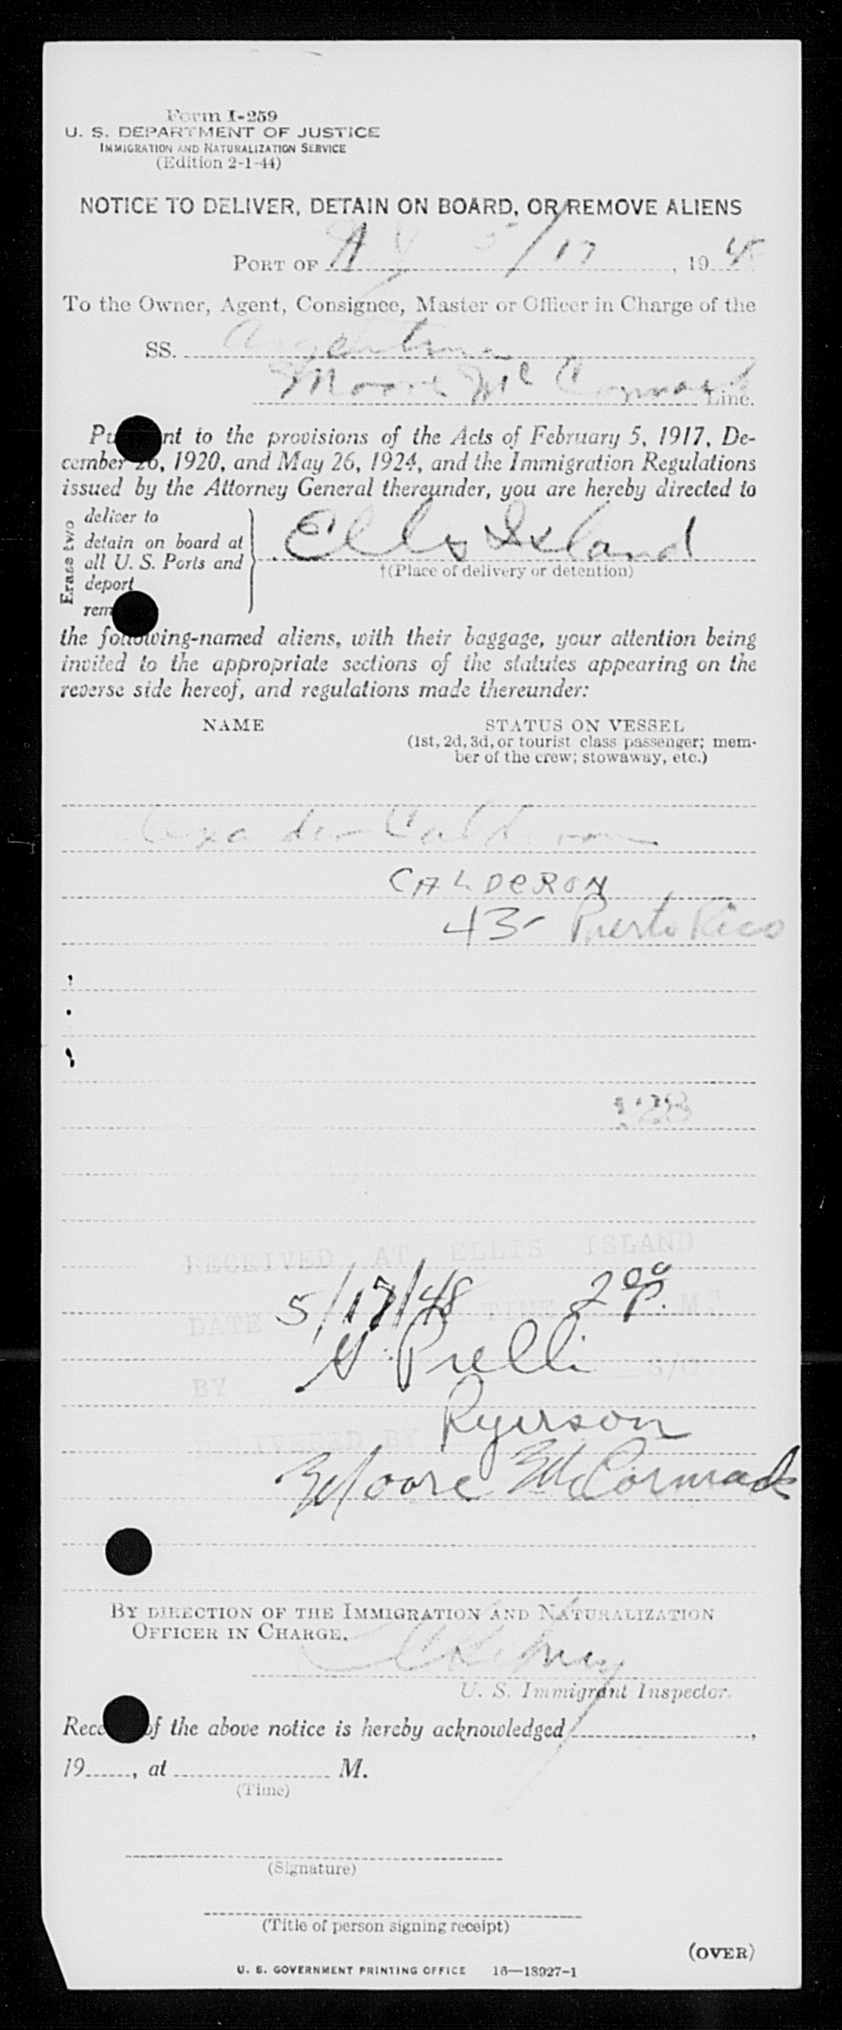 Form I-259
U. S. DEPARTMENT OF JUSTICE
IMMIGRATION AND NATURALIZATION SERVICE
(Edition 2-1-44)
NOTICE TO DELIVER, DETAIN ON BOARD, OR REMOVE ALIENS
PORT OF N Y 5/17, 1948
To the Owner, Agent, Consignee, Master or Officer in Charge of the
SS. Argentina
Moore McCormack Line.
Pu nt to the provisions of the Acts of February 5, 1917, De-
cember 26, 1920, and May 26, 1924, and the Immigration Regulations
issued by the Attorney General thereunder, you are hereby directed to
Erase two
deliver to
detain on board at
all U. S. Ports and
deport
rem
Ellis Island
†(Place of delivery or detention)
the following-named aliens, with their baggage, your attention being
invited to the appropriate sections of the statutes appearing on the
reverse side hereof, and regulations made thereunder:
NAME STATUS ON VESSEL
(1st, 2d, 3d, or tourist class passenger; mem-
ber of the crew; stowaway, etc.)
CALDERON
43- Puerto Rico
28
RECEIVED AT ELLIS ISLAND
DATE 5/17/48 TIME 2 00 P. M.
BY S/O
Ryerson
DELIVERED BY
Moore McCormack
BY DIRECTION OF THE IMMIGRATION AND NATURALIZATION
OFFICER IN CHARGE.
U. S. Immigrant Inspector.
Rece of the above notice is hereby acknowledged ,
19 , at M.
(Time)
(Signature)
(Title of person signing receipt)
(OVER)
U. S. GOVERNMENT PRINTING OFFICE 16—18927-1